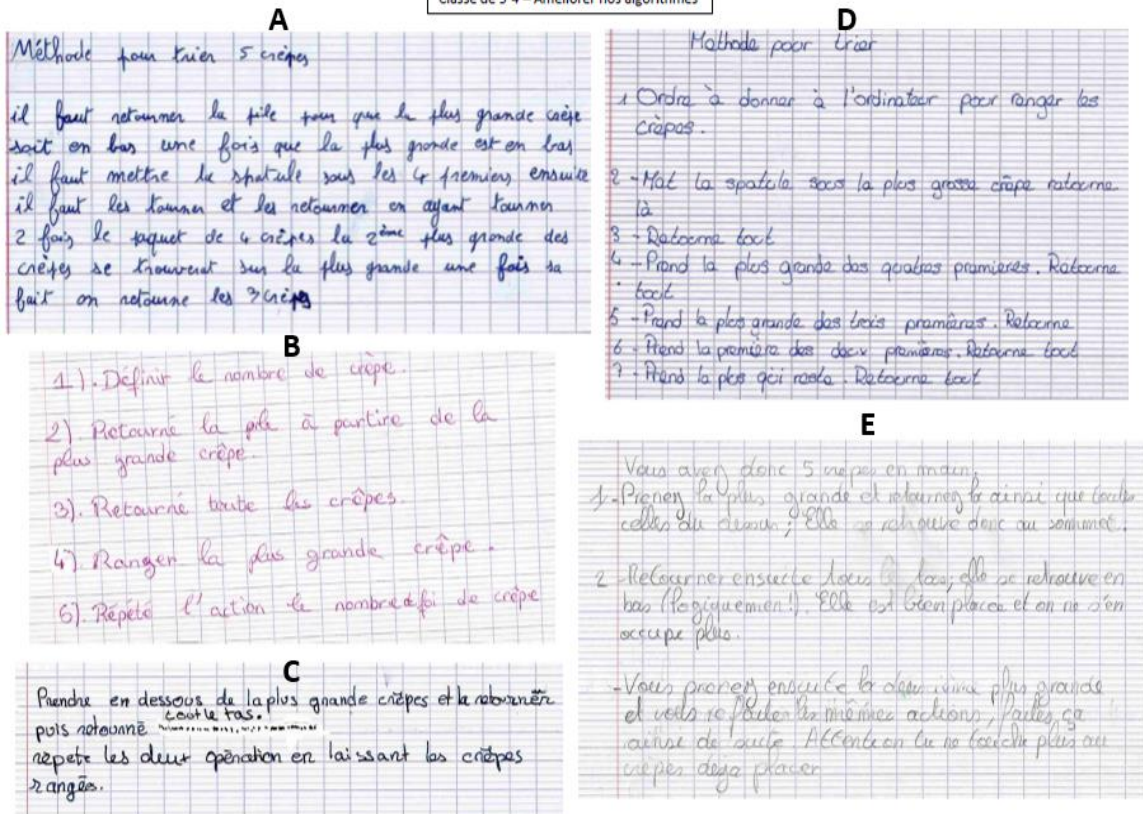 Classe de 5°4 – Améliorer nos algorithmes
A
Méthode pour trier 5 crèpes
il faut retourner la pile pour que la plus grande crèpe
soit en bas une fois que la plus grande est en bas
il faut mettre la spatule sous les 4 premiers ensuite
il faut les tourner et les retourner en ayant tourner
2 fois le paquet de 4 crèpes la 2ème plus grande des
crèpes se trouverat sur la plus grande une fois sa
fait on retourne les 3 crèpes
B
1). Définir le nombre de crèpe.
2). Retourné la pile à partire de la
plus grande crêpe.
3). Retourné toute les crêpes.
4). Ranger la plus grande crêpe.
5). Répété l'action le nombre de foi de crèpe
C
Prendre en dessous de la plus grande crêpes et la retourner
puis retourné tout le tas.
répète les deux opération en laissant les crêpes
rangées.
D
Methode pour trier
1 Ordre à donner à l'ordinateur pour ranger les
crèpes.
2 - Met la spatule sous la plus grosse crêpe retourne
là
3 - Retourne tout
4 - Prend la plus grande des quatres premieres. Retourne
tout
5 - Prend la plus grande des trois premières. Retourne
6 - Prend la première des deux premières. Retourne tout
7 - Prend la plus qui reste. Retourne tout
E
Vous avez donc 5 crepes en main,
1 - Prenez la plus grande et retournez la ainsi que toutes
celles du dessus ; Elle se retrouve donc au sommet.
2 - Retourner ensuite tous le tas, elle se retrouve en
bas (logiquement !) Elle est bien placée et on ne s'en
occupe plus.
- Vous prenez ensuite la deuxième plus grande
et vous refaites les mêmes actions, faites ça
ainsi de suite Attention tu ne touche plus au
crèpes deja placer